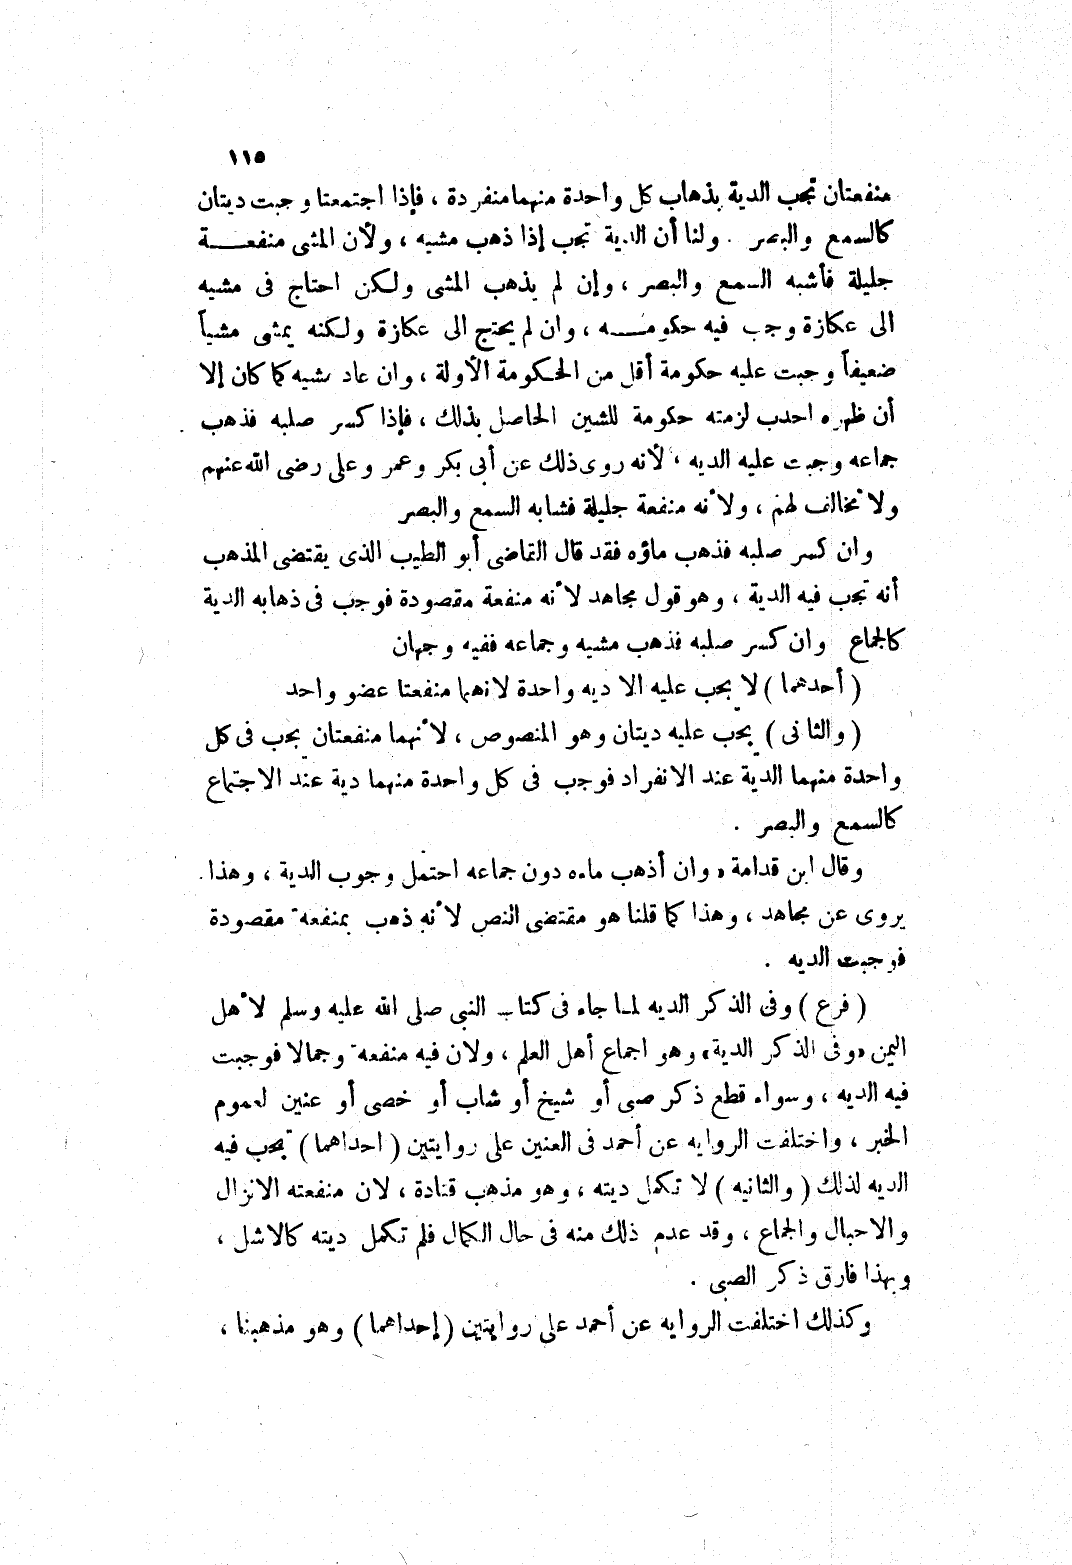 ١١٥
منفعتان تجب الدية بذهاب كل واحدة منهما منفردة ، فإذا اجتمعتا وجبت ديتان
كالسمع والبصر . ولنا أن الدية تجب إذا ذهب مشيه ، ولأن المشى منفعـــة
جليلة فأشبه السمع والبصر ، وإن لم يذهب المشى ولكن احتاج فى مشيه
الى عكازة وجب فيه حكومـــه ، وان لم يحتج الى عكازة ولكنه يمشى مشياً
ضعيفاً وجبت عليه حكومة أقل من الحكومة الأولة ، وان عاد مشيه كما كان إلا
أن ظهره احدب لزمته حكومة للشين الحاصل بذلك ، فإذا كسر صلبه فذهب
جماعه وجبت عليه الديه ، لأنه روى ذلك عن أبى بكر وعمر وعلى رضى الله عنهم
ولا مخالف لهم ، ولأنه منفعة جليلة فشابه السمع والبصر
وان كسر صلبه فذهب ماؤه فقد قال القاضى أبو الطيب الذى يقتضى المذهب
أنه تجب فيه الدية ، وهو قول مجاهد لأنه منفعة مقصودة فوجب فى ذهابه الدية
كالجماع وان كسر صلبه فذهب مشيه وجماعه ففيه وجهان
( أحدهما ) لا يجب عليه الا ديه واحدة لانهما منفعتا عضو واحد
( والثانى ) يجب عليه ديتان وهو المنصوص ، لأنهما منفعتان يجب فى كل
واحدة منهما الدية عند الانفراد فوجب فى كل واحدة منهما دية عند الاجتماع
كالسمع والبصر .
وقال ابن قدامة « وان أذهب ماءه دون جماعه احتمل وجوب الدية ، وهذا
يروى عن مجاهد ، وهذا كما قلنا هو مقتضى النص لأنه ذهب بمنفعة مقصودة
فوجبت الديه .
( فرع ) وفى الذكر الديه لما جاء فى كتاب النبى صلى الله عليه وسلم لأهل
اليمن «وفى الذكر الدية» وهو اجماع أهل العلم ، ولان فيه منفعة وجمالا فوجبت
فيه الديه ، وسواء قطع ذكر صبى أو شيخ أو شاب أو خصى أو عنين لعموم
الخبر ، واختلفت الروايه عن أحمد فى العنين على روايتين ( احداهما ) تجب فيه
الديه لذلك ( والثانيه ) لا تكمل ديته ، وهو مذهب قتادة ، لان منفعته الانزال
والاحبال والجماع ، وقد عدم ذلك منه فى حال الكمال فلم تكمل ديته كالاشل ،
وبهذا فارق ذكر الصبى .
وكذلك اختلفت الروايه عن أحمد على روايتين (إحداهما) وهو مذهبنا ،